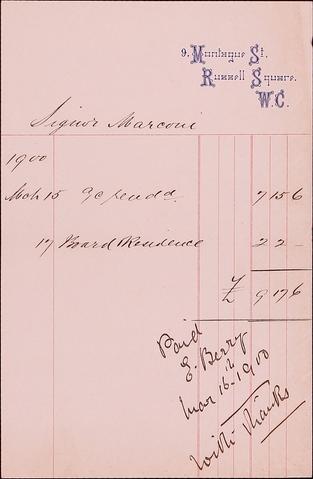 9. Montague St.
Russell Square.
W.C.
Signor Marconi
1900
Mch 15 a/c rendd. 7 15 6
17 Board Residence 2 2 -
£ 9 17 6
Paid
E. Berry
Mar 16th 1900
With thanks